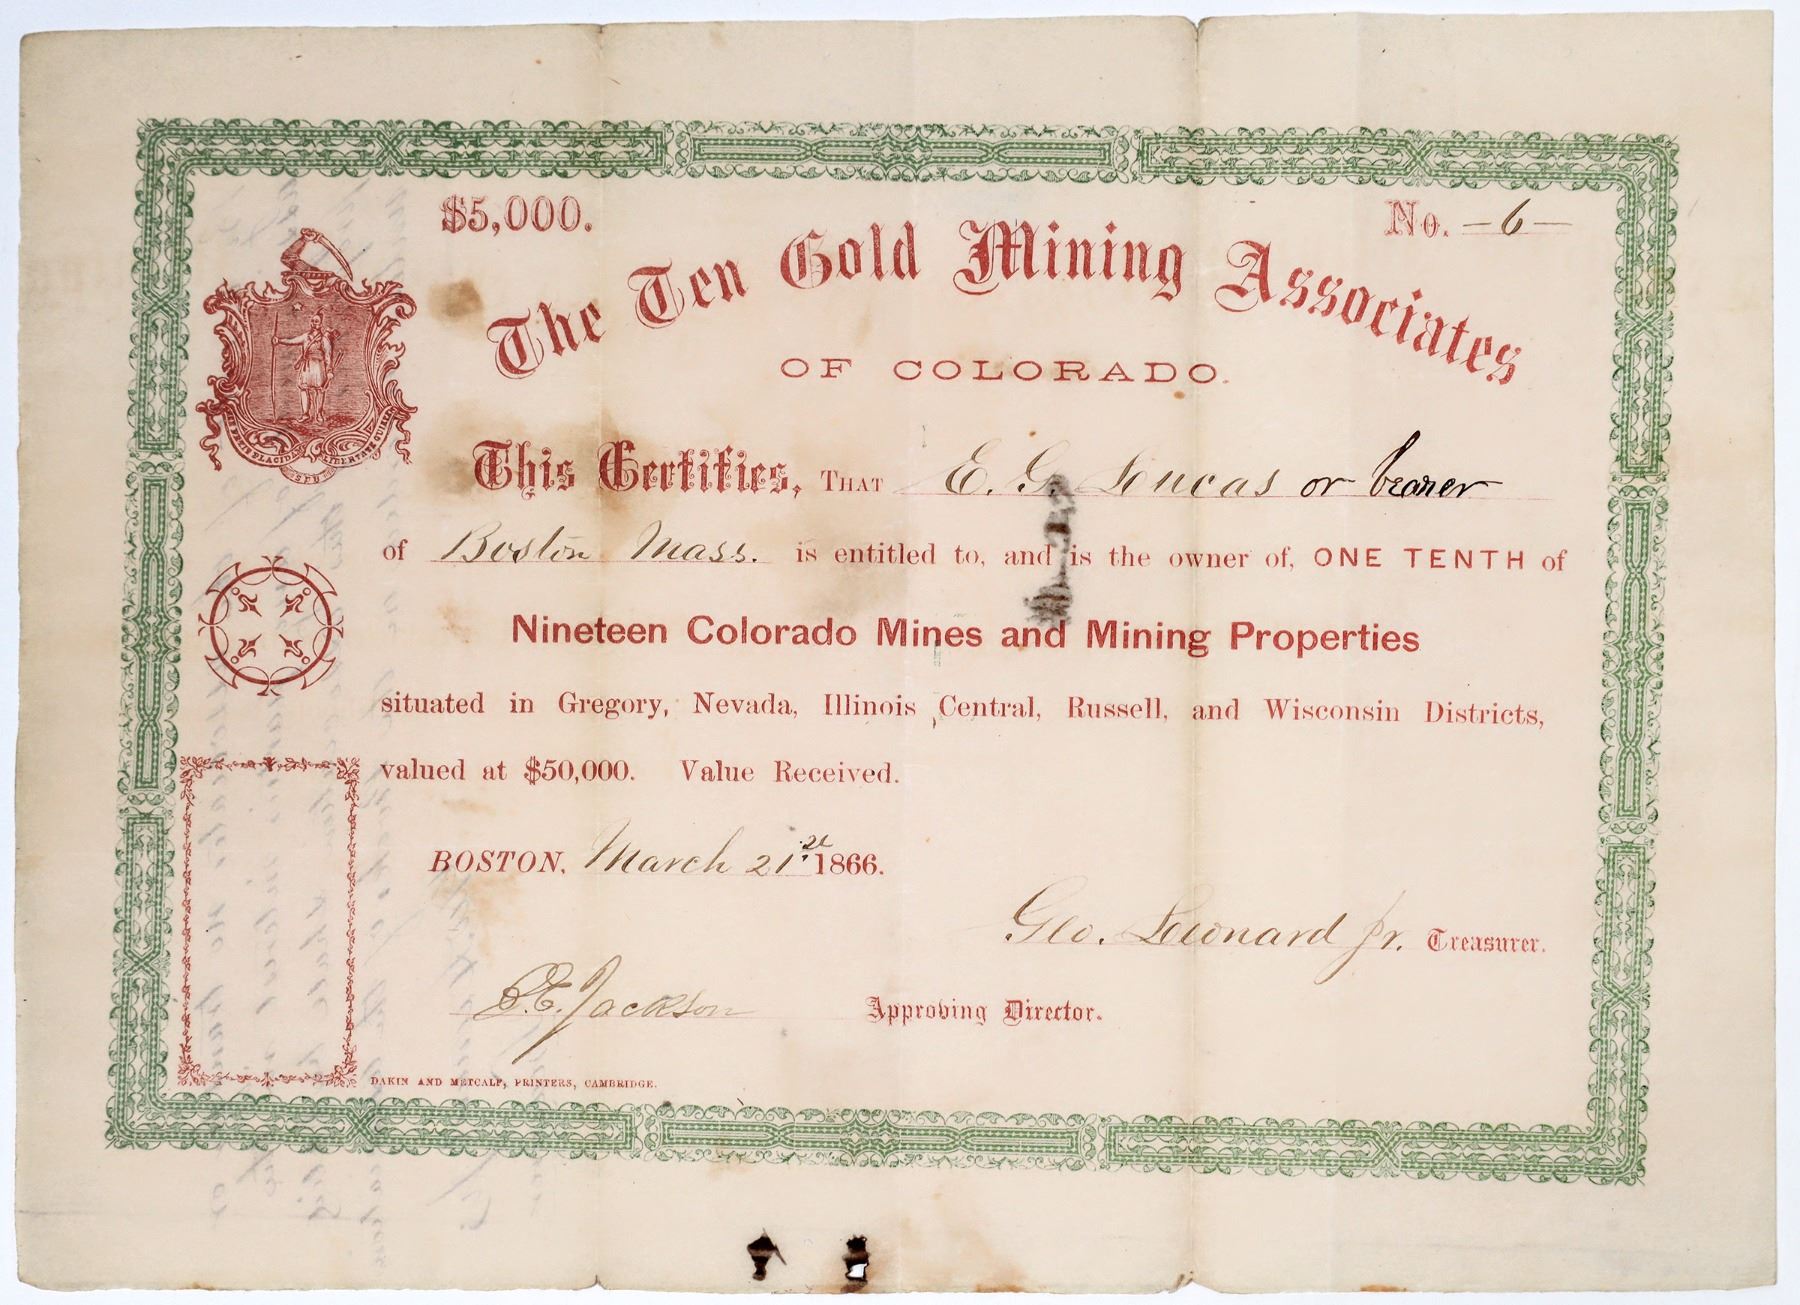 $5,000.
No. - 6 -
The Ten Gold Mining Associates
OF COLORADO.
This Certifies, THAT E. G. Loucas or bearer
of Boston Mass. is entitled to, and is the owner of, ONE TENTH of
Nineteen Colorado Mines and Mining Properties
situated in Gregory, Nevada, Illinois Central, Russell, and Wisconsin Districts,
valued at $50,000. Value Received.
BOSTON, March 21st 1866.
Geo. Leonard Jr. Treasurer.
E. Jackson Approving Director.
DAKIN AND METCALF, PRINTERS, CAMBRIDGE.
ENSE PETIT PLACIDAM
LIBERTATE QUIETEM